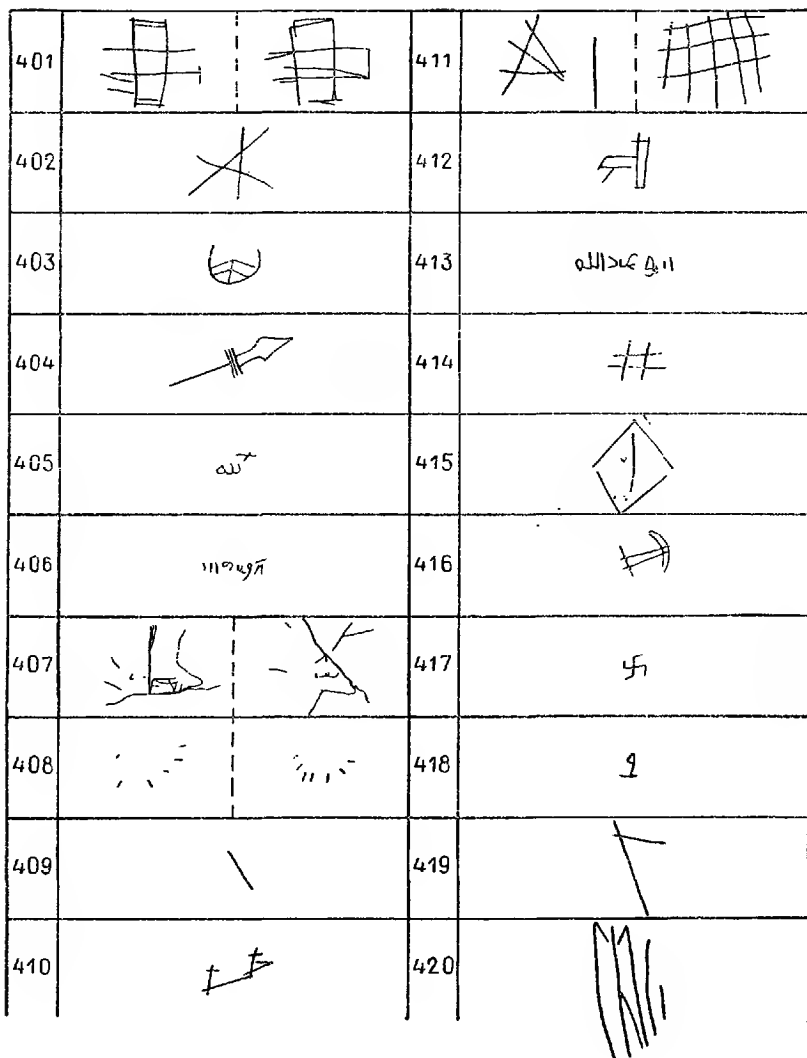 401 411
402 412
403 413
404 414
405 415
406 416
407 417
408 418
409 419
410 420